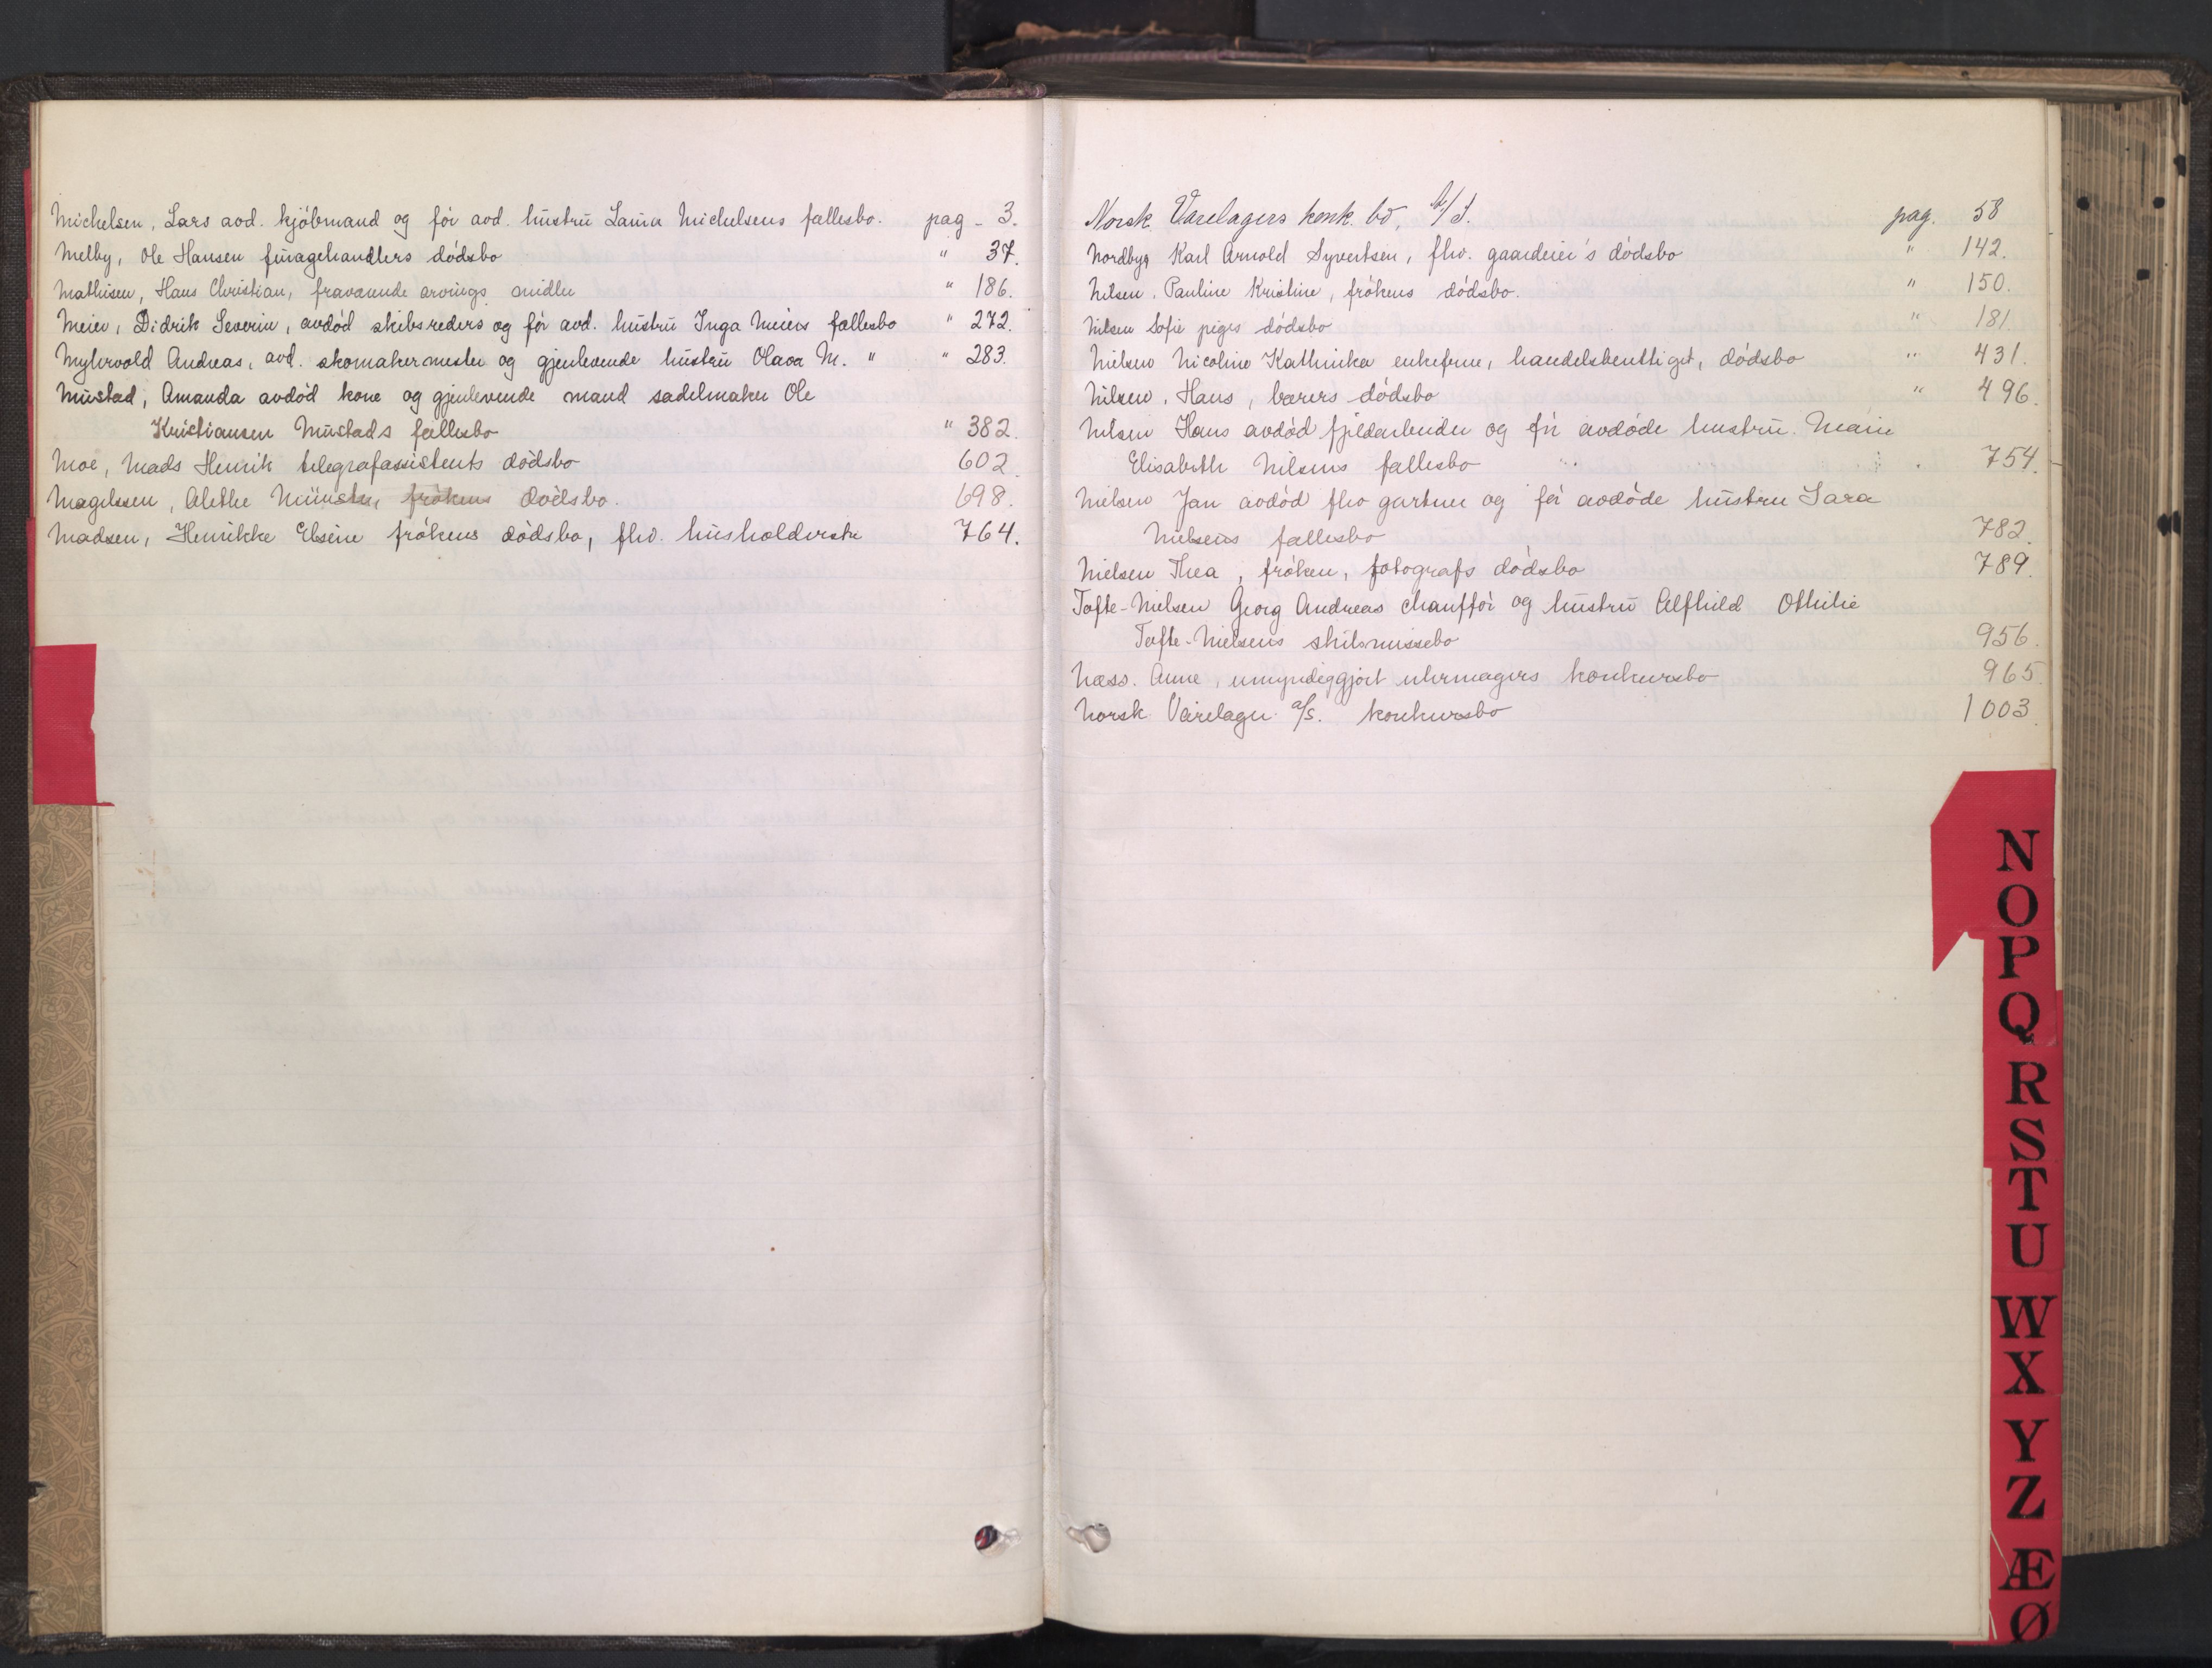 Michelsen, Lars avd. kjøbmand og før avd. hustru Laura Michelsens fællesbo. pag - 3.
Melby, Ole Hansen furagehandlers dødsbo " 37.
Mathisen, Hans Christian, fraværende arvings midler " 186.
Meier, Didrik Severin, avdød skibsreders og før avd. hustru Inga Meiers fællesbo " 272.
Myhrvold Andreas, avd. skomakermester og gjenlevende hustru Olava M. " " 283.
Mustad, Amanda avdød kone og gjenlevende mand sadelmaker Ole
Kristiansen Mustads fællesbo " 382.
Moe, Mads Henrik telegrafassistents dødsbo 602
Magelssen, Alethe Münster, frøkens dødsbo. 698.
Madsen, Henrikke Elsine frøkens dødsbo, fhv. husholderske 764.
Norsk Varelagers konk. bo, A/S. pag. 58
Nordbye Karl Arnold Syvertsen, fhv. gaardeier's dødsbo " 142.
Nilsen, Pauline Kristine, frøkens dødsbo. " 150.
Nilsen Sofie piges dødsbo " 181.
Nielsen Nicoline Kathinka enkefrue, handelsberettiget, dødsbo " 431.
Nilsen, Hans, bærers dødsbo " 496.
Nilsen Hans avdød fjeldarbeider og før avdøde hustru Marie
Elisabeth Nilsens fællesbo " " 754.
Nielsen Jan avdød fhv gartner og før avdøde hustru Sara
Nielsens fællesbo 782.
Nielsen Thea, frøken, fotografs dødsbo 789.
Tofte-Nielsen Georg Andreas chauffør og hustru Alfhild Othilie
Tofte-Nielsens skilsmissebo 956.
Næss. Anne, umyndiggjort uhrmagers konkursbo 965.
Norsk Varelager a/s. konkursbo 1003.
N
O
P
Q
R
S
T
U
W
X
Y
Z
Æ
Ø